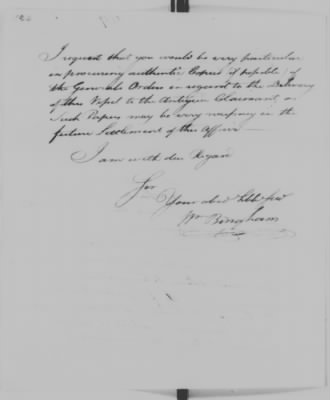 I request that you would be very particular
in procuring authentic Copies if possible, of
the Generals Orders in regard to the Delivery
of this Vessel to the Antiguan Claimant, as
Such Papers may be very necessary in the
future Settlement of this Affair —
I am with due Regard
Sir
Your obed Hble
Wm Bingham